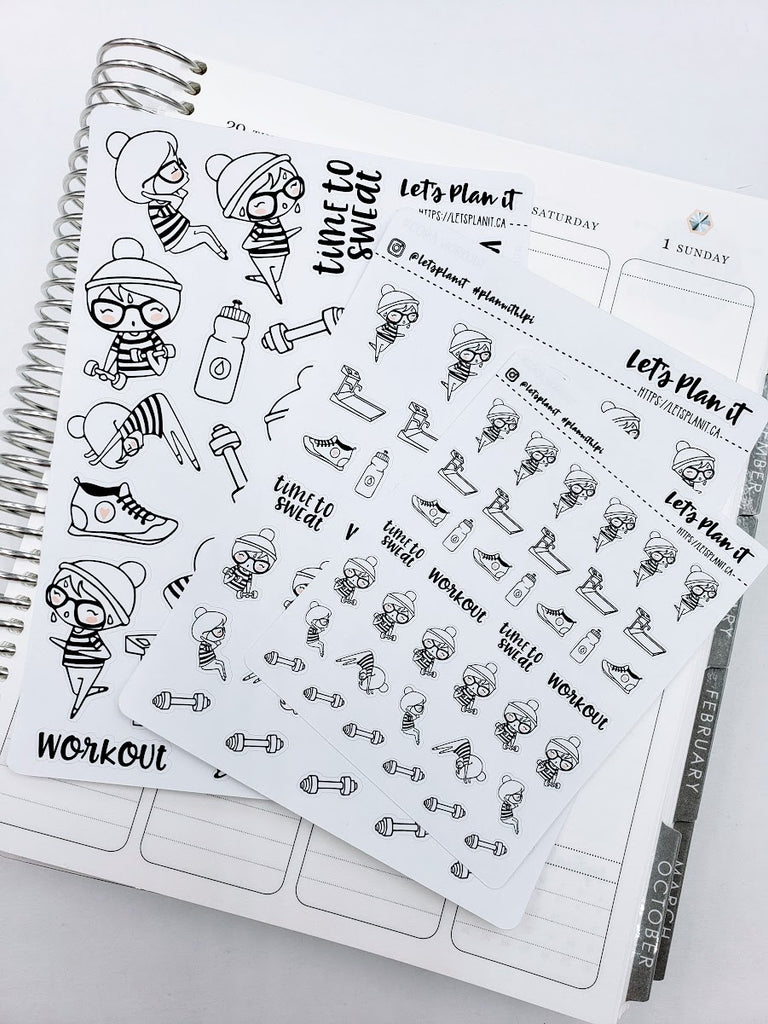 SATURDAY
1 SUNDAY
time to
sweat
Let's Plan it
HTTPS://LETSPLANIT.CA
WORKOUT
@letsplanit #planwithlpi
Let's Plan it
HTTPS://LETSPLANIT.CA
time to
sweat
@letsplanit #planwithlpi
Let's Plan it
HTTPS://LETSPLANIT.CA
time to
sweat
WORKOUT
time to
sweat
WORKOUT
FEBRUARY
MARCH
OCTOBER